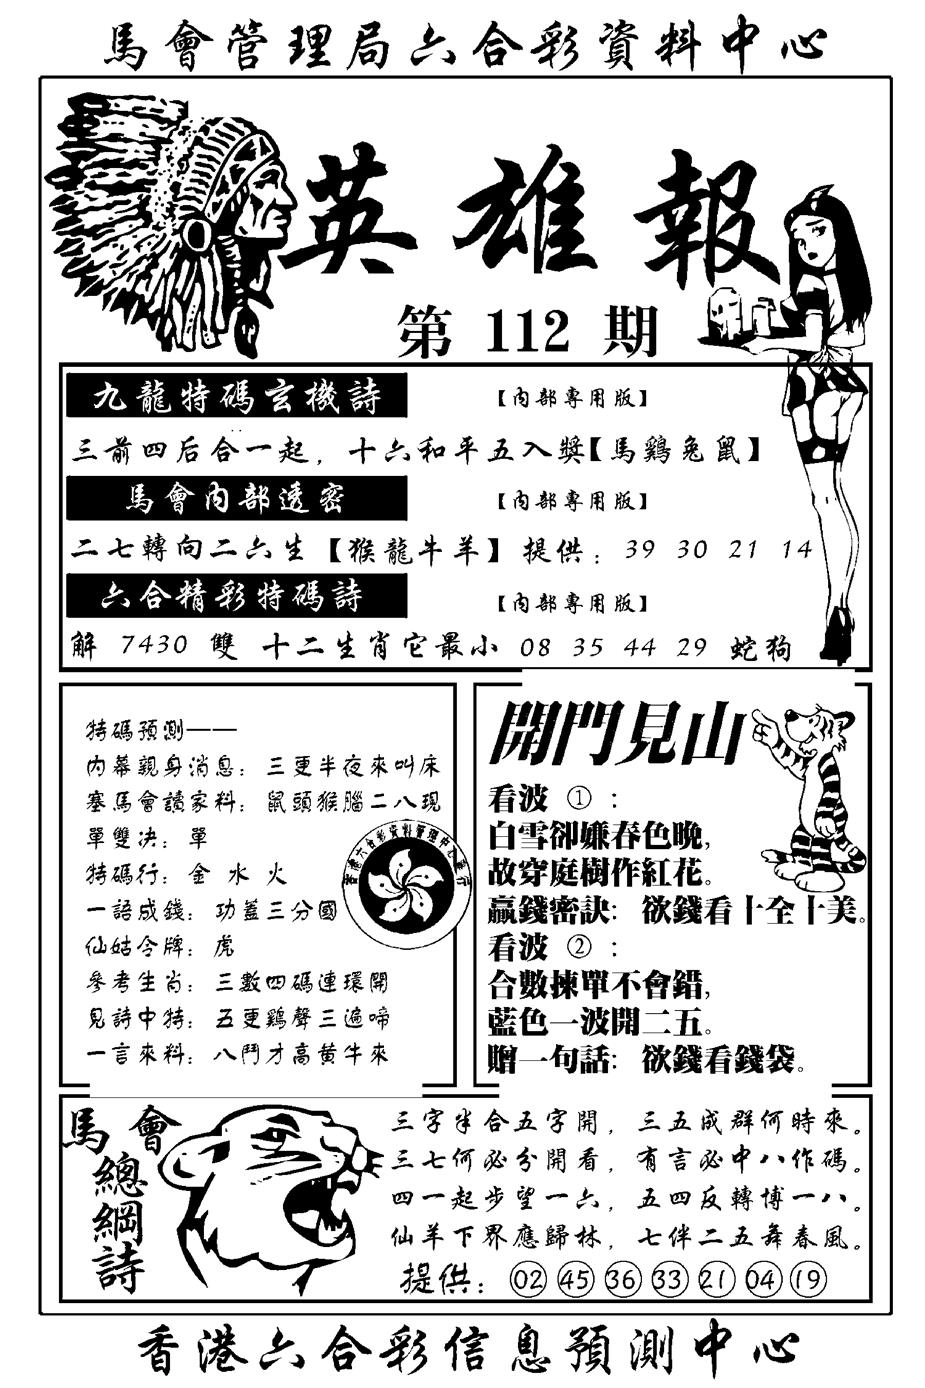 馬會管理局六合彩資料中心
英雄報
第 112 期
九龍特碼玄機詩 【內部專用版】
三前四后合一起，十六和平五入獎【馬鷄兔鼠】
馬會內部透密 【內部專用版】
二七轉向二六生【猴龍牛羊】提供：39 30 21 14
六合精彩特碼詩 【內部專用版】
解 7430 雙 十二生肖它最小 08 35 44 29 蛇狗
特碼預測——
內幕親身消息：三更半夜來叫床
塞馬會讀家料：鼠頭猴腦二八現
單雙决：單
特碼行：金 水 火
一語成錢：功蓋三分國
仙姑令牌：虎
參考生肖：三數四碼連環開
見詩中特：五更鷄聲三遍啼
一言來料：八鬥才高黄牛來
香港六合彩資料管理中心發行
開門見山
看波 ①：
白雪卻嫌春色晚，
故穿庭樹作紅花。
贏錢密訣：欲錢看十全十美。
看波 ②：
合數揀單不會錯，
藍色一波開二五。
贈一句話：欲錢看錢袋。
馬會
總綱詩
三字半合五字開，三五成群何時來。
三七何必分開看，有言必中八作碼。
四一起步望一六，五四反轉博一八。
仙羊下界應歸林，七伴二五舞春風。
提供：02 45 36 33 21 04 19
香港六合彩信息預測中心